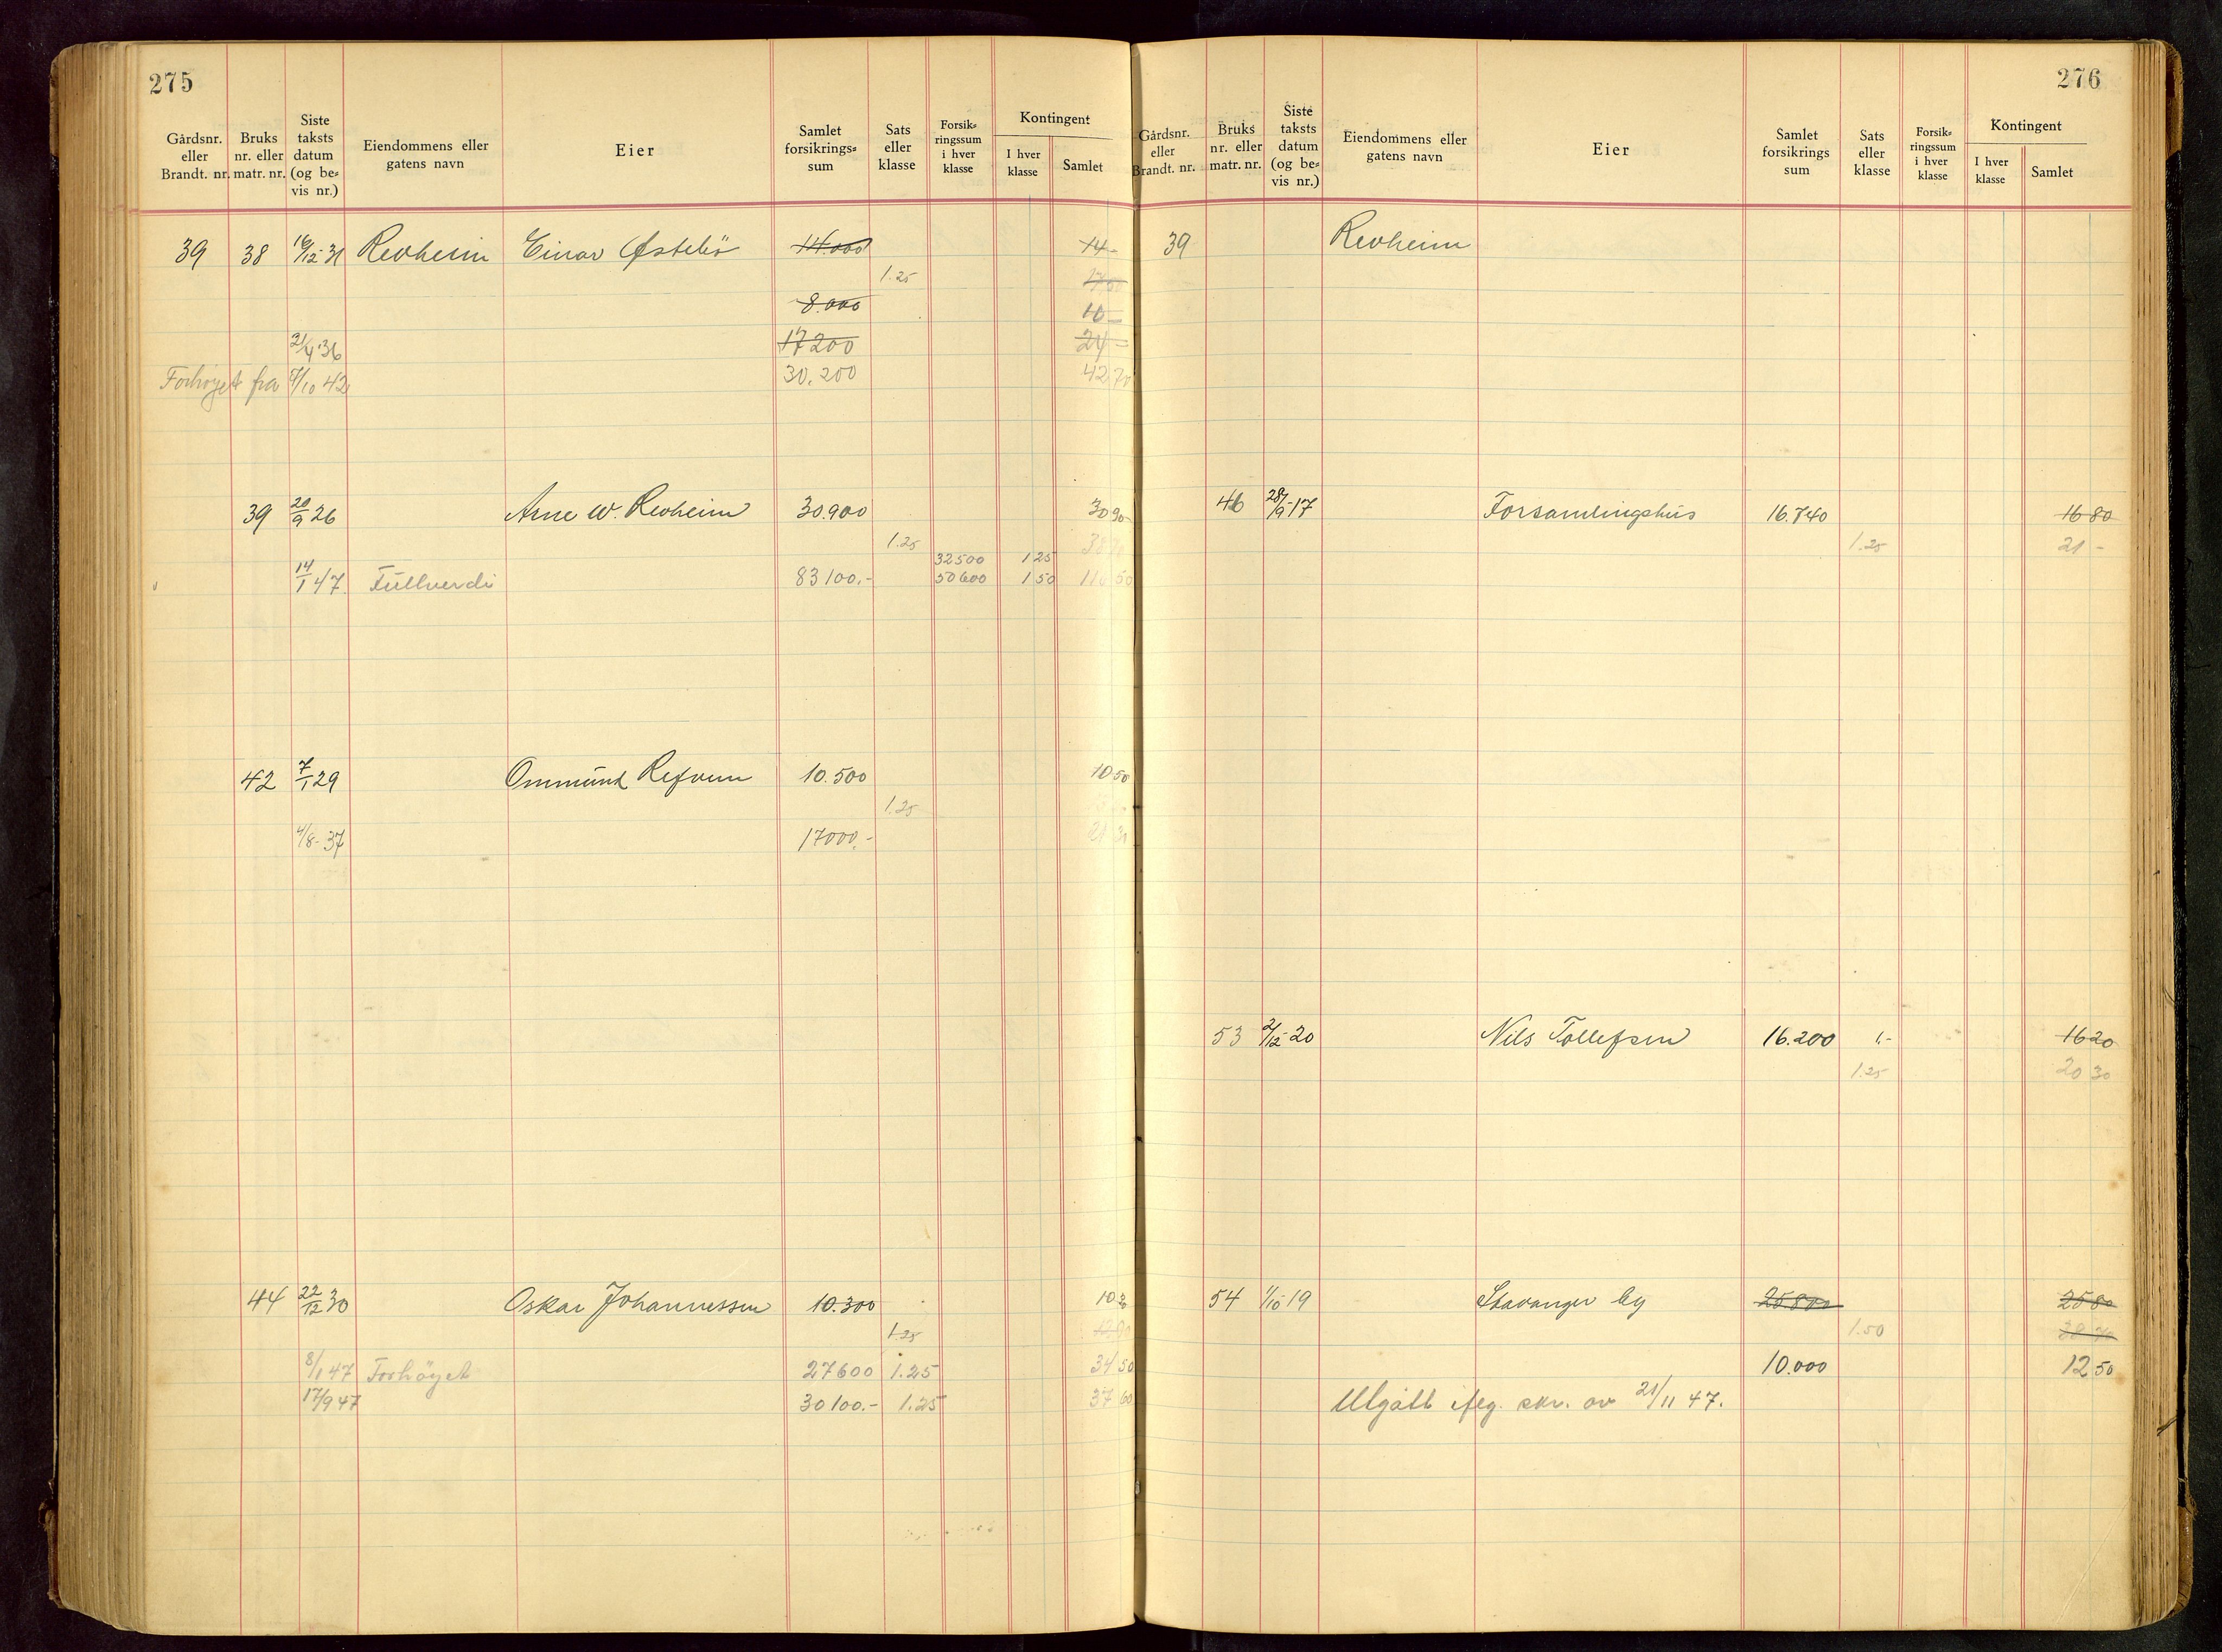 275
Gårdsnr. eller Brandt. nr. Bruks nr. eller matr. nr. Siste taksts datum (og be= vis nr.) Eiendommens eller gatens navn Eier Samlet forsikrings= sum Sats eller klasse Forsik= ringssum i hver klasse Kontingent I hver klasse Samlet
39 38 16/12-31 Revheim Einar Østebö 14.000 14-
1.25
8.000 10-
21/4-36 17200 24-
Forhöyet fra 7/10 42 30.200 42 70
39 20/9 26 Arne W. Revheim 30.900 30 90
1.25
32500 1 25
14/1 47. Fullverdi 83100.- 50600 1 50 116 50
42 7/1 29 Ommund 10.500 10 50
1.25
4/8-37 17000.-
44 22/12 30 Oskar Johannessen 10.300 10 30
1.25
8/1 47 Forhöyet 27600 1.25 34 50
17/9 47 30100.- 1.25 37 60
276
Gårdsnr. eller Brandt. nr. Bruks nr. eller matr. nr. Siste taksts datum (og be= vis nr.) Eiendommens eller gatens navn Eier Samlet forsikrings sum Sats eller klasse Forsik= ringssum i hver klasse Kontingent I hver klasse Samlet
39 Revheim
46 28/9-17 Forsamlingshus 16.740 16 80
1.25 21-
53 2/12-20 Nils Tollefsen 16.200 1.- 16 20
1.25 20 30
54 1/10 19 Stavanger by 25800 25 80
1.50 38 70
10.000 12 50
Utgått ifeg. skr. av 21/11 47.